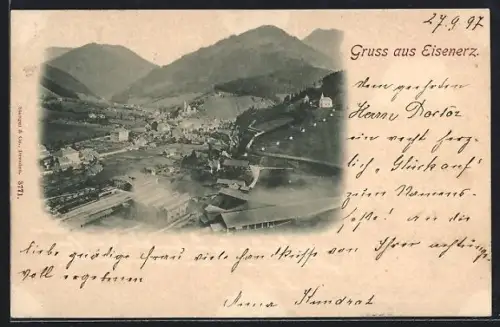 27.9.97
Gruss aus Eisenerz.
Dem geehrten
Herrn Doctor
ein recht herz-
lich "Glückauf"
zum Namens-
feste! An die
liebe gnädige Frau viele Handküsse von Ihrer achtungs-
voll ergebenen
Anna Kundrat
Stengel & Co., Dresden. 3771.